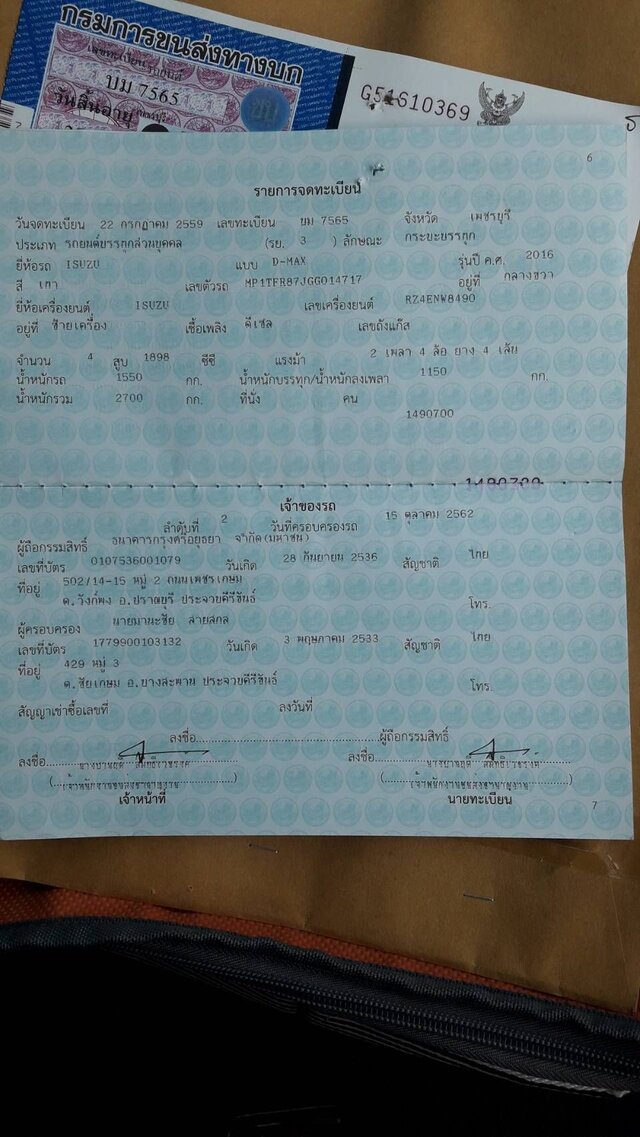 กรมการขนส่งทางบก
เลขทะเบียนรถยนต์
บม 7565
เพชรบุรี
วันสิ้นอายุ
G51610369
6
รายการจดทะเบียน
วันจดทะเบียน 22 กรกฎาคม 2559 เลขทะเบียน บม 7565 จังหวัด เพชรบุรี
ประเภท รถยนต์บรรทุกส่วนบุคคล (รย. 3 ) ลักษณะ กระบะบรรทุก
ยี่ห้อรถ ISUZU แบบ D-MAX รุ่นปี ค.ศ. 2016
สี เทา เลขตัวรถ MP1TFR87JGG014717 อยู่ที่ กลางขวา
ยี่ห้อเครื่องยนต์ ISUZU เลขเครื่องยนต์ RZ4ENW8490
อยู่ที่ ซ้ายเครื่อง เชื้อเพลิง ดีเซล เลขถังแก๊ส
จำนวน 4 สูบ 1898 ซีซี แรงม้า 2 เพลา 4 ล้อ ยาง 4 เส้น
น้ำหนักรถ 1550 กก. น้ำหนักบรรทุก/น้ำหนักลงเพลา 1150 กก.
น้ำหนักรวม 2700 กก. ที่นั่ง คน
1490700
1490700
เจ้าของรถ
ลำดับที่ 2 วันที่ครอบครองรถ 15 ตุลาคม 2562
ผู้ถือกรรมสิทธิ์ ธนาคารกรุงศรีอยุธยา จำกัด(มหาชน)
เลขที่บัตร 0107536001079 วันเกิด 28 กันยายน 2536 สัญชาติ ไทย
ที่อยู่ 502/14-15 หมู่ 2 ถนนเพชรเกษม
ต.วังก์พง อ.ปราณบุรี ประจวบคีรีขันธ์ โทร.
ผู้ครอบครอง นายมานะชัย สายสกล
เลขที่บัตร 1779900103132 วันเกิด 3 พฤษภาคม 2533 สัญชาติ ไทย
ที่อยู่ 429 หมู่ 3
ต.ชัยเกษม อ.บางสะพาน ประจวบคีรีขันธ์ โทร.
สัญญาเช่าซื้อเลขที่ ลงวันที่
ลงชื่อ ผู้ถือกรรมสิทธิ์
ลงชื่อ ลงชื่อ
(เจ้าพนักงานขนส่งชำนาญงาน) (เจ้าพนักงานขนส่งชำนาญงาน)
เจ้าหน้าที่ นายทะเบียน
7